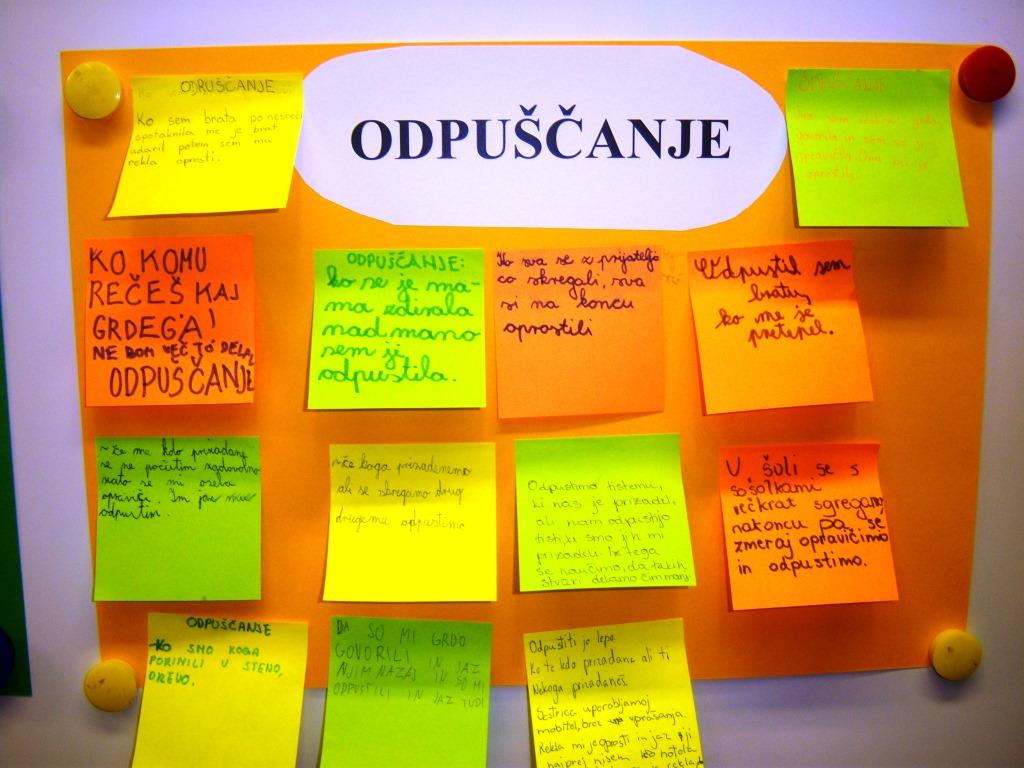 ODPUŠČANJE
ODRUŠČANJE
Ko sem brata po nesreči
spotaknila me je brat
udaril potem sem mu
rekla oprosti.
ODPUŠČANJE
sem grdo
govorila in sem se ji
opravičila. Ona mi je
oprostila.
KO KOMU
REČEŠ KAJ
GRDEGA!
NE BOM VEČ TO DELAL
ODPUŠČANJE
ODPUŠČANJE:
ko se je ma-
ma zdirala
nad mano
sem ji
odpustila.
Ko sva se z prijateljo
co skregali, sva
si na koncu
oprostili
Odpustil sem
bratu,
ko me je
pretepel.
~če me kdo prizadane
se ne počutim
zato se mi
opraviči. In jaz mu
odpustim.
~če koga prizadenemo
ali se skregamo drug
drugemu odpustimo
Odpustimo tistemu,
ki nas je prizadel,
ali nam odpustijo
tisti, ki smo jih mi
prizadeli. Iz tega
se naučimo, da takih
stvari delamo čim manj
V šoli se s
sošolkami
večkrat sgregamo,
nakoncu pa se
zmeraj opravičimo
in odpustimo.
ODPUŠČANJE
KO SMO KOGA
PORINILI V STENO,
DREVO.
DA SO MI GRDO
GOVORILI IN JAZ
NJIM NAZAJ IN SO MI
ODPUSTILI IN JAZ TUDI
Odpustiti je lepo
Ko te kdo prizadane ali ti
Nekoga prizadaneš.
Sestrica uporabljamoj
mobitel, brez vprašanja.
Rekla mi je oprosti in jaz ji
najprej nisem hotela
rekla